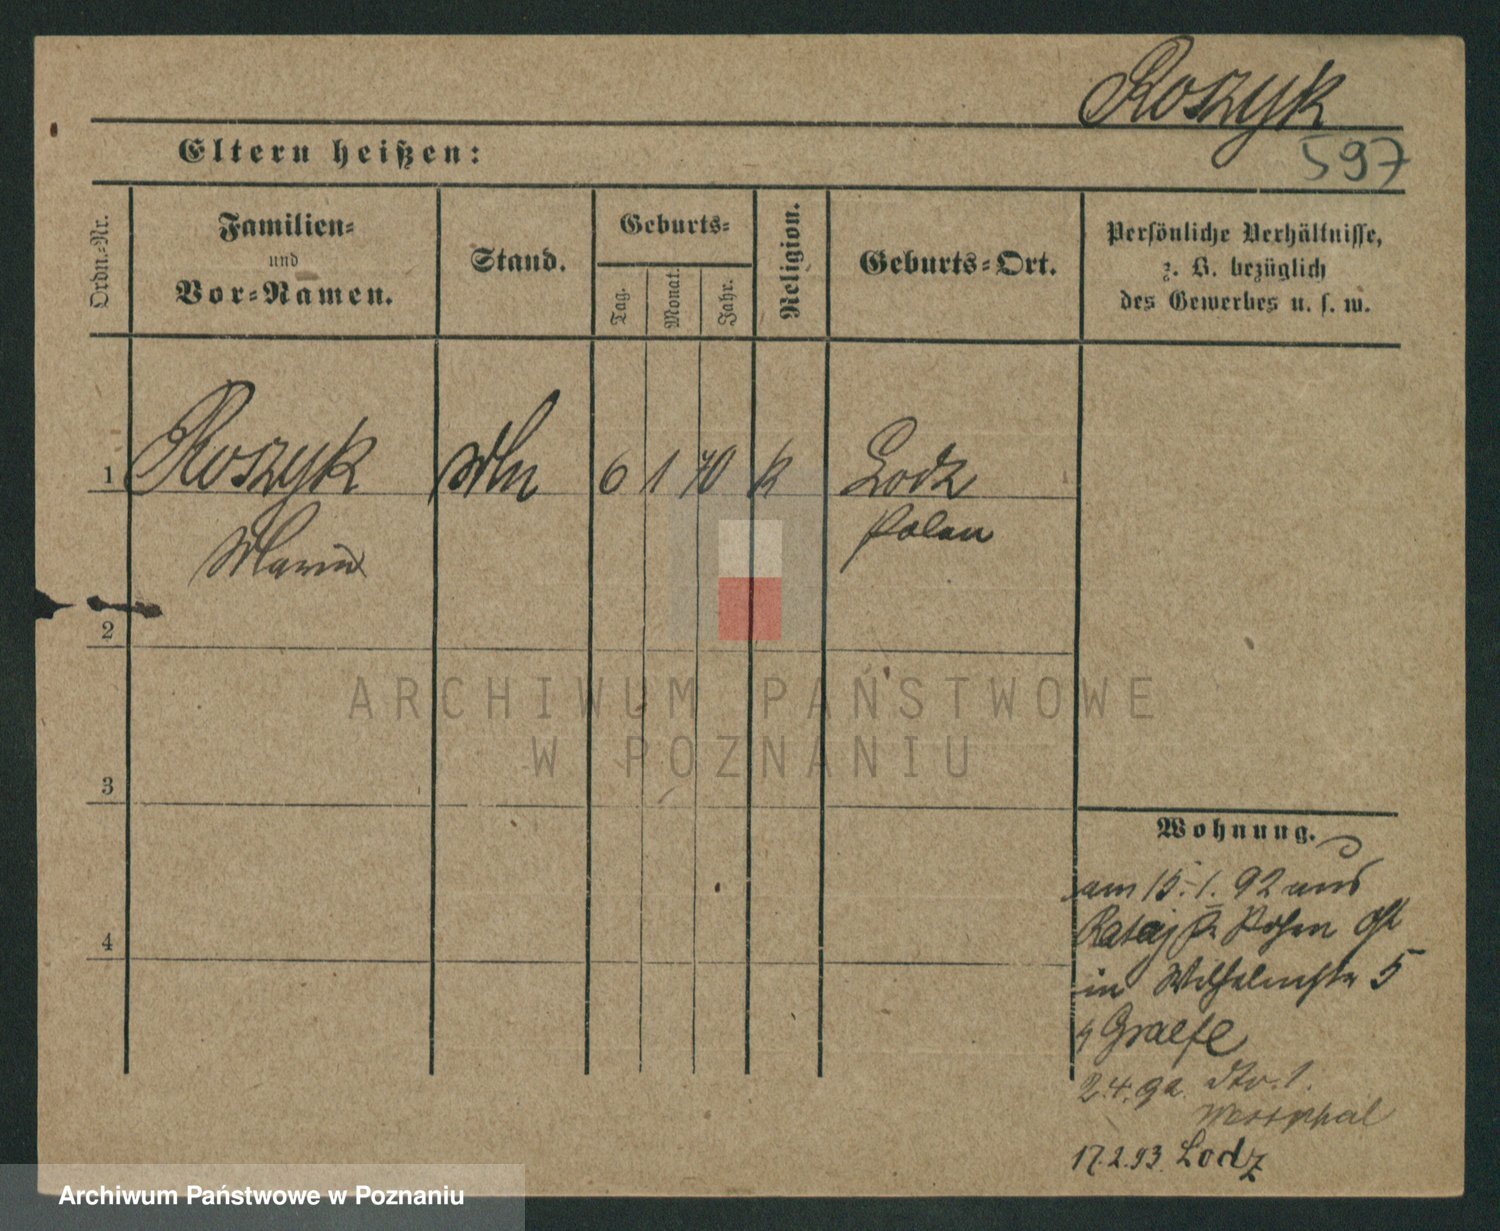 Roszyk
Eltern heißen:
597
Ordn.-Nr.
Familien-
und
Vor-Namen.
Stand.
Geburts-
Tag.
Monat.
Jahr.
Religion.
Geburts-Ort.
Persönliche Verhältnisse,
z. B. bezüglich
des Gewerbes u. s. w.
1 Roszyk 6 1 70 k Lodz
Polen
2
ARCHIWUM PAŃSTWOWE
W POZNANIU
3
Wohnung.
am 15.1.92 aus
Rataj
4
in Wilhelmstr 5
Graefe
2.4.92
Westphal
17.2.93 Lodz
Archiwum Państwowe w Poznaniu